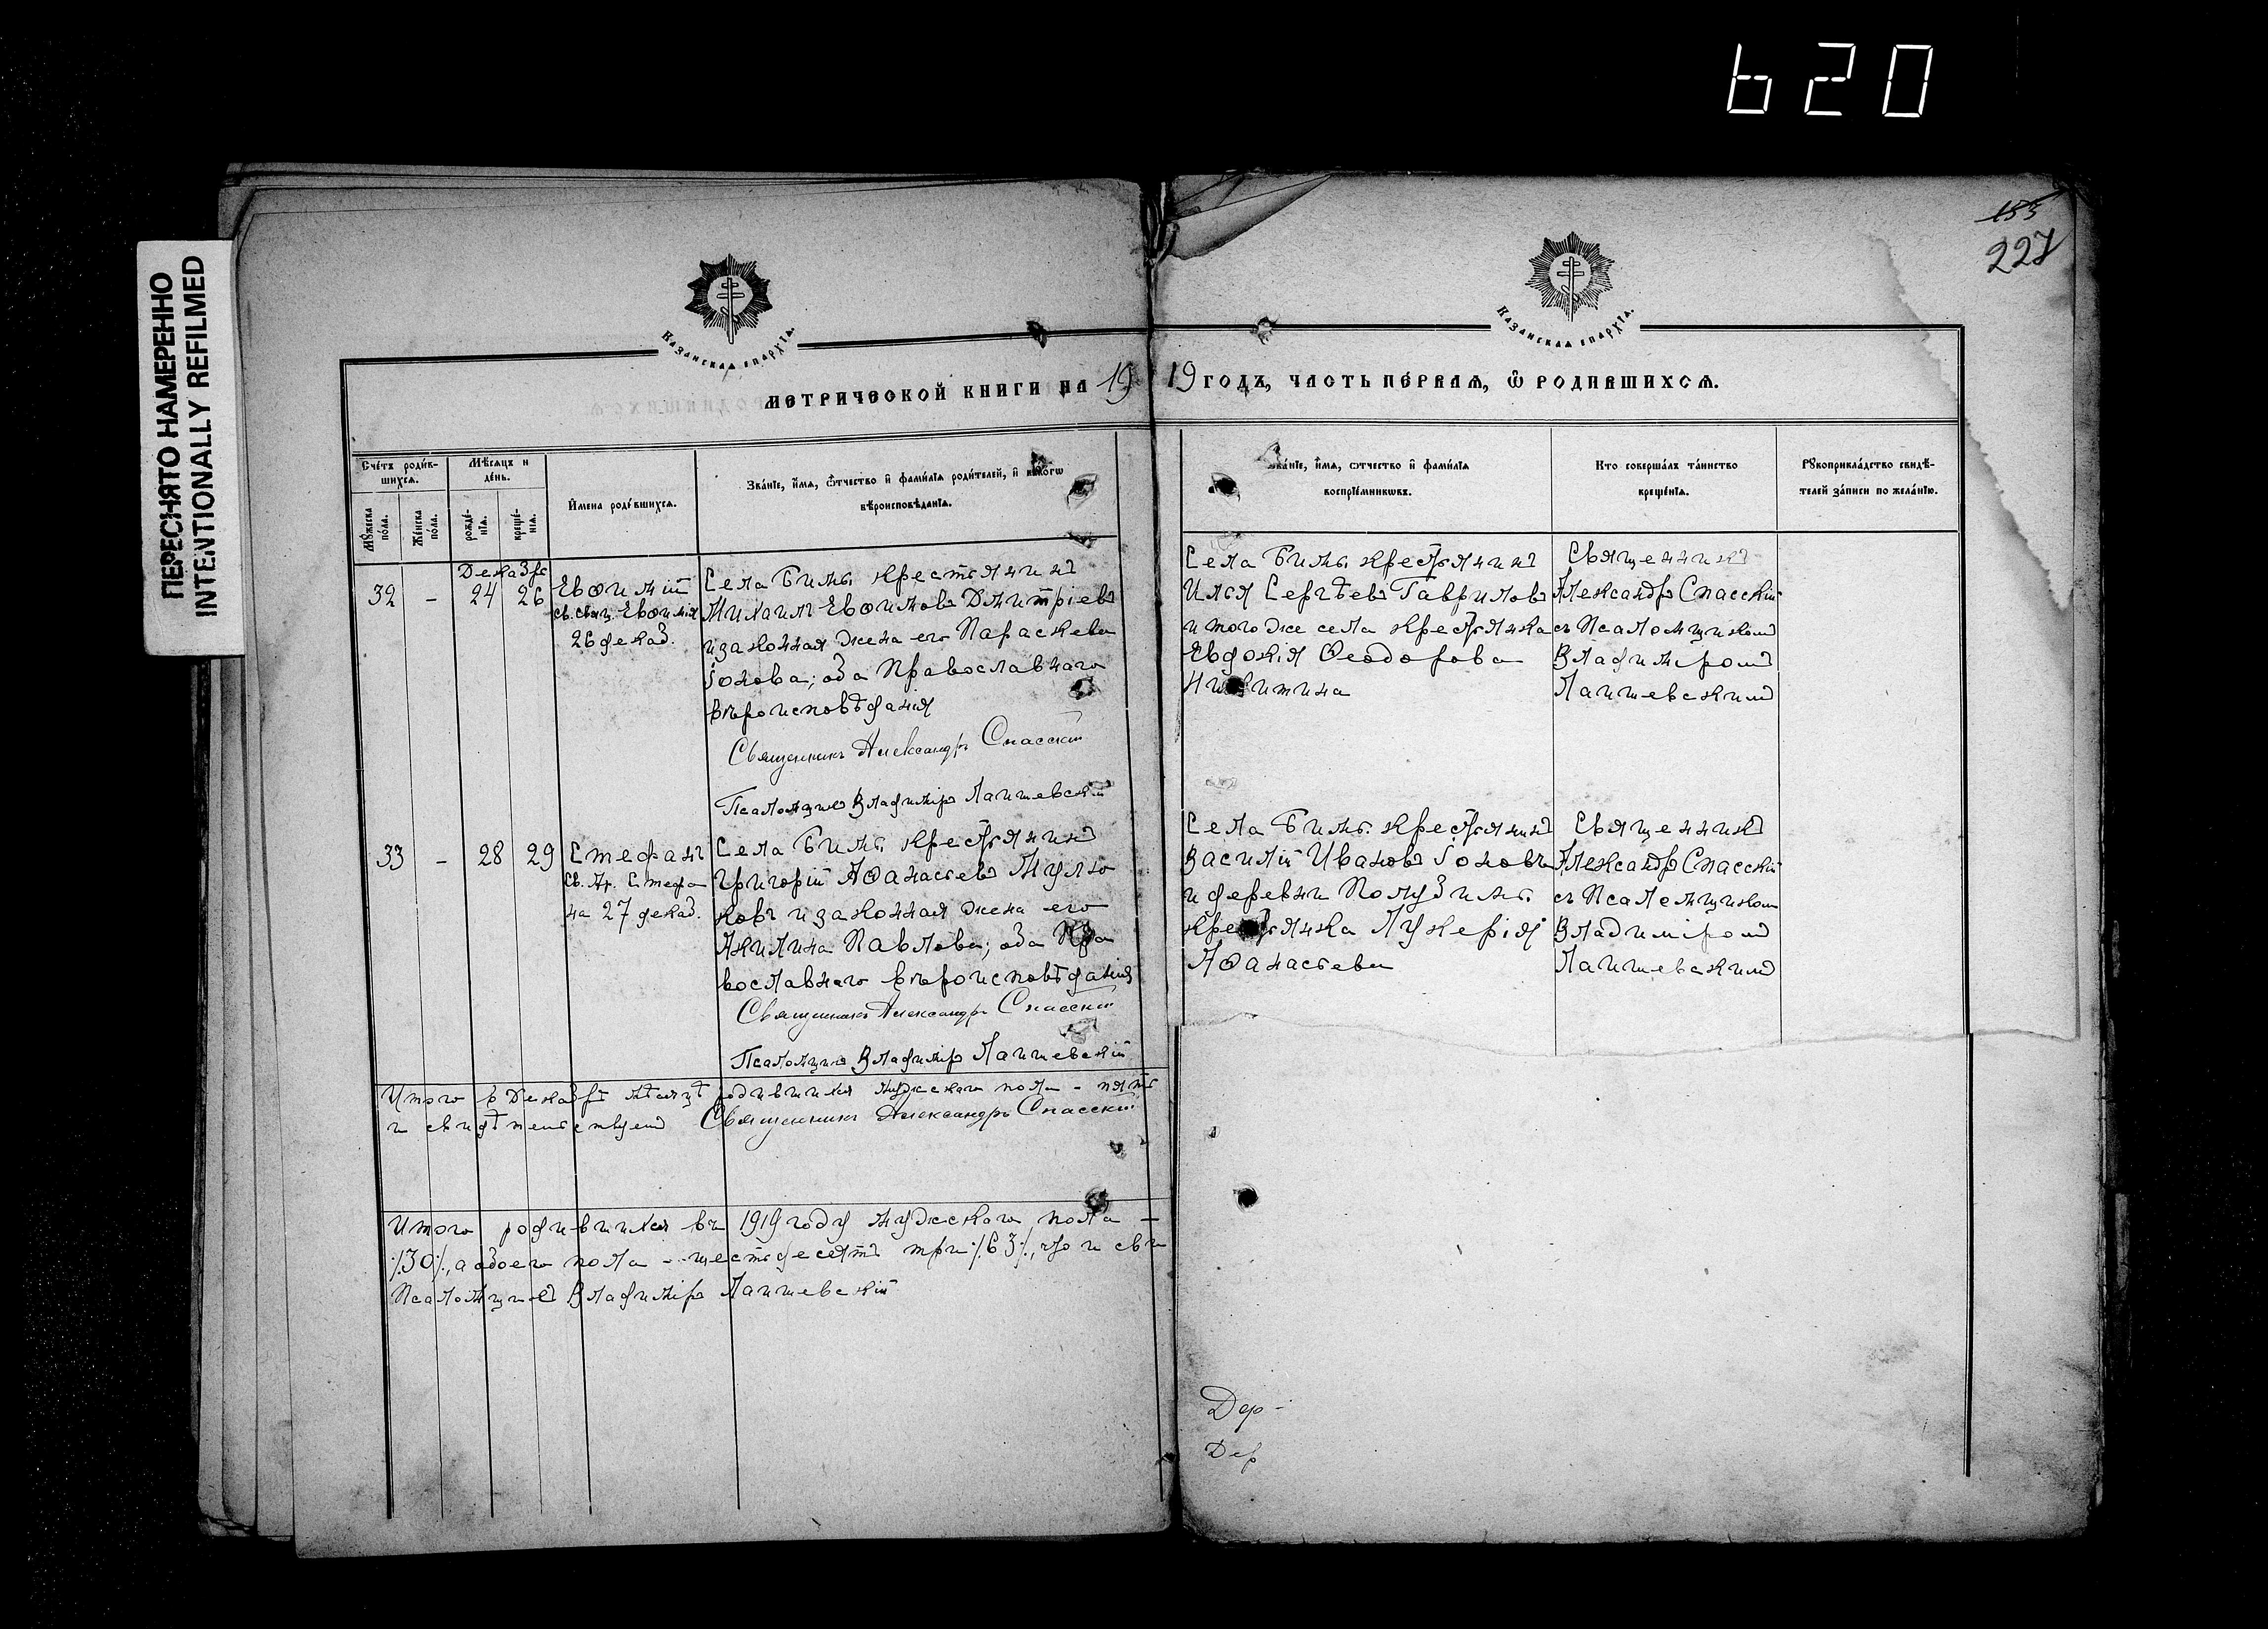 620
ПЕРЕСНЯТО НАМЕРЕННО
INTENTIONALLY REFILMED
183
227
Казанская епархія.
Казанская епархія.
МЕТРИЧЕСКОЙ КНИГИ НА 19
19 ГОДЪ, ЧАСТЬ ПЕРВАЯ, Ѿ РОДИВШИХСЯ.
Счетъ родив-
шихся.
Мѣсяцъ и
день.
Мужеска
пола.
Женска
пола.
рожде-
нія.
креще-
нія.
Имена родившихся.
Званіе, имя, отчество и фамилія родителей, и
вѣроисповѣданія.
Званіе, имя, отчество и фамилія
воспріемниковъ.
Кто совершалъ таинство
крещенія.
Рукоприкладство свидѣ-
телей записи по желанію.
Декабрь
32 - 24 26
Евѳимій
св. свящ. Евѳимія
26 декаб.
Села Бимы крестьянинъ
Михаилъ Евѳимовъ Димитріевъ
и законная жена его Параскева
Іонова; оба Православнаго
вѣроисповѣданія
Священникъ Александръ Спасскій
Псаломщикъ Владиміръ Лаишевскій
Села Бимы крестьянинъ
Илья Сергѣевъ Гавриловъ
и того же села крестьянка
Евдокія Ѳеодорова
Никитина
Священникъ
Александръ Спасскій
съ Псаломщикомъ
Владиміромъ
Лаишевскимъ
33 - 28 29
Стефанъ
Св. Ап. Стефа
на 27 декаб.
Села Бимы крестьянинъ
Григорій Аѳанасьевъ Мулю
ковъ и законная жена его
Акилина Павлова; оба Пра
вославнаго вѣроисповѣданія
Священникъ Александръ Спасскій
Псаломщикъ Владиміръ Лаишевскій
Села Бимы крестьянинъ
Василій Ивановъ Іоновъ
и деревни
крестьянка Лукерія
Аѳанасьева
Священникъ
Александръ Спасскій
съ Псаломщикомъ
Владиміромъ
Лаишевскимъ
Итого въ Декабрѣ мѣсяцѣ родившихся мужескаго пола - пять
и свидѣтельствуемъ Священникъ Александръ Спасскій
Итого родившихся въ 1919 году мужескаго пола -
/:30:/, а обоего пола - шестьдесятъ три /:63:/, что и сви
Псаломщикъ Владиміръ Лаишевскій
Дер -
Дер